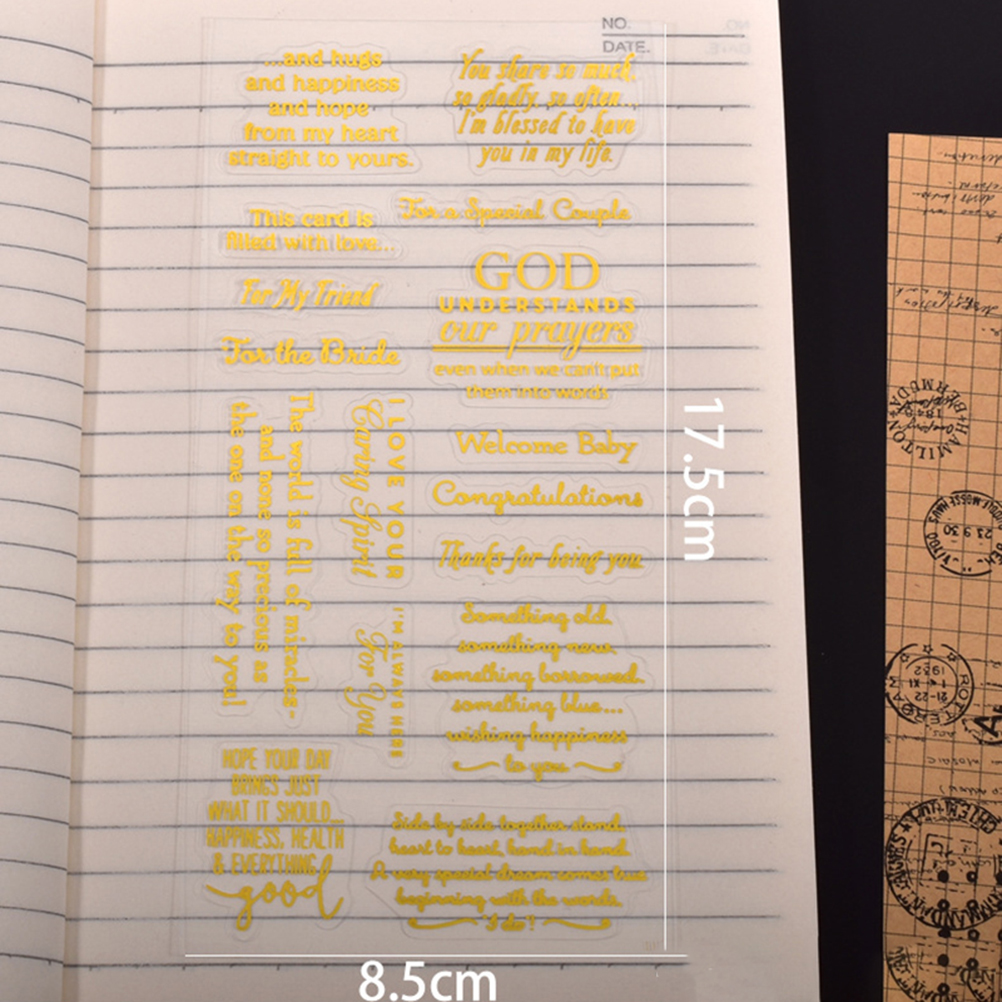 NO.
DATE.
...and hugs
and happiness
and hope
from my heart
straight to yours.
You share so much,
so gladly, so often...
I'm blessed to have
you in my life.
This card is
filled with love...
For a Special Couple
For My Friend
GOD
UNDERSTANDS
our prayers
even when we can't put
them into words.
For the Bride
The world is full of miracles-
and none so precious as
the one on the way to you!
I LOVE YOUR
Caring Spirit
Welcome Baby
Congratulations
Thanks for being you
I'M ALWAYS HERE
For You
Something old,
something new,
something borrowed,
something blue...
wishing happiness
to you
HOPE YOUR DAY
BRINGS JUST
WHAT IT SHOULD...
HAPPINESS, HEALTH
& EVERYTHING
good
Side by side together stand,
heart to heart, hand in hand.
A very special dream comes true
beginning with the words,
"I do"!
17.5cm
8.5cm
HAMILTON
BERMUDA
23 9 30
ROTTERDAM
21-22
1932